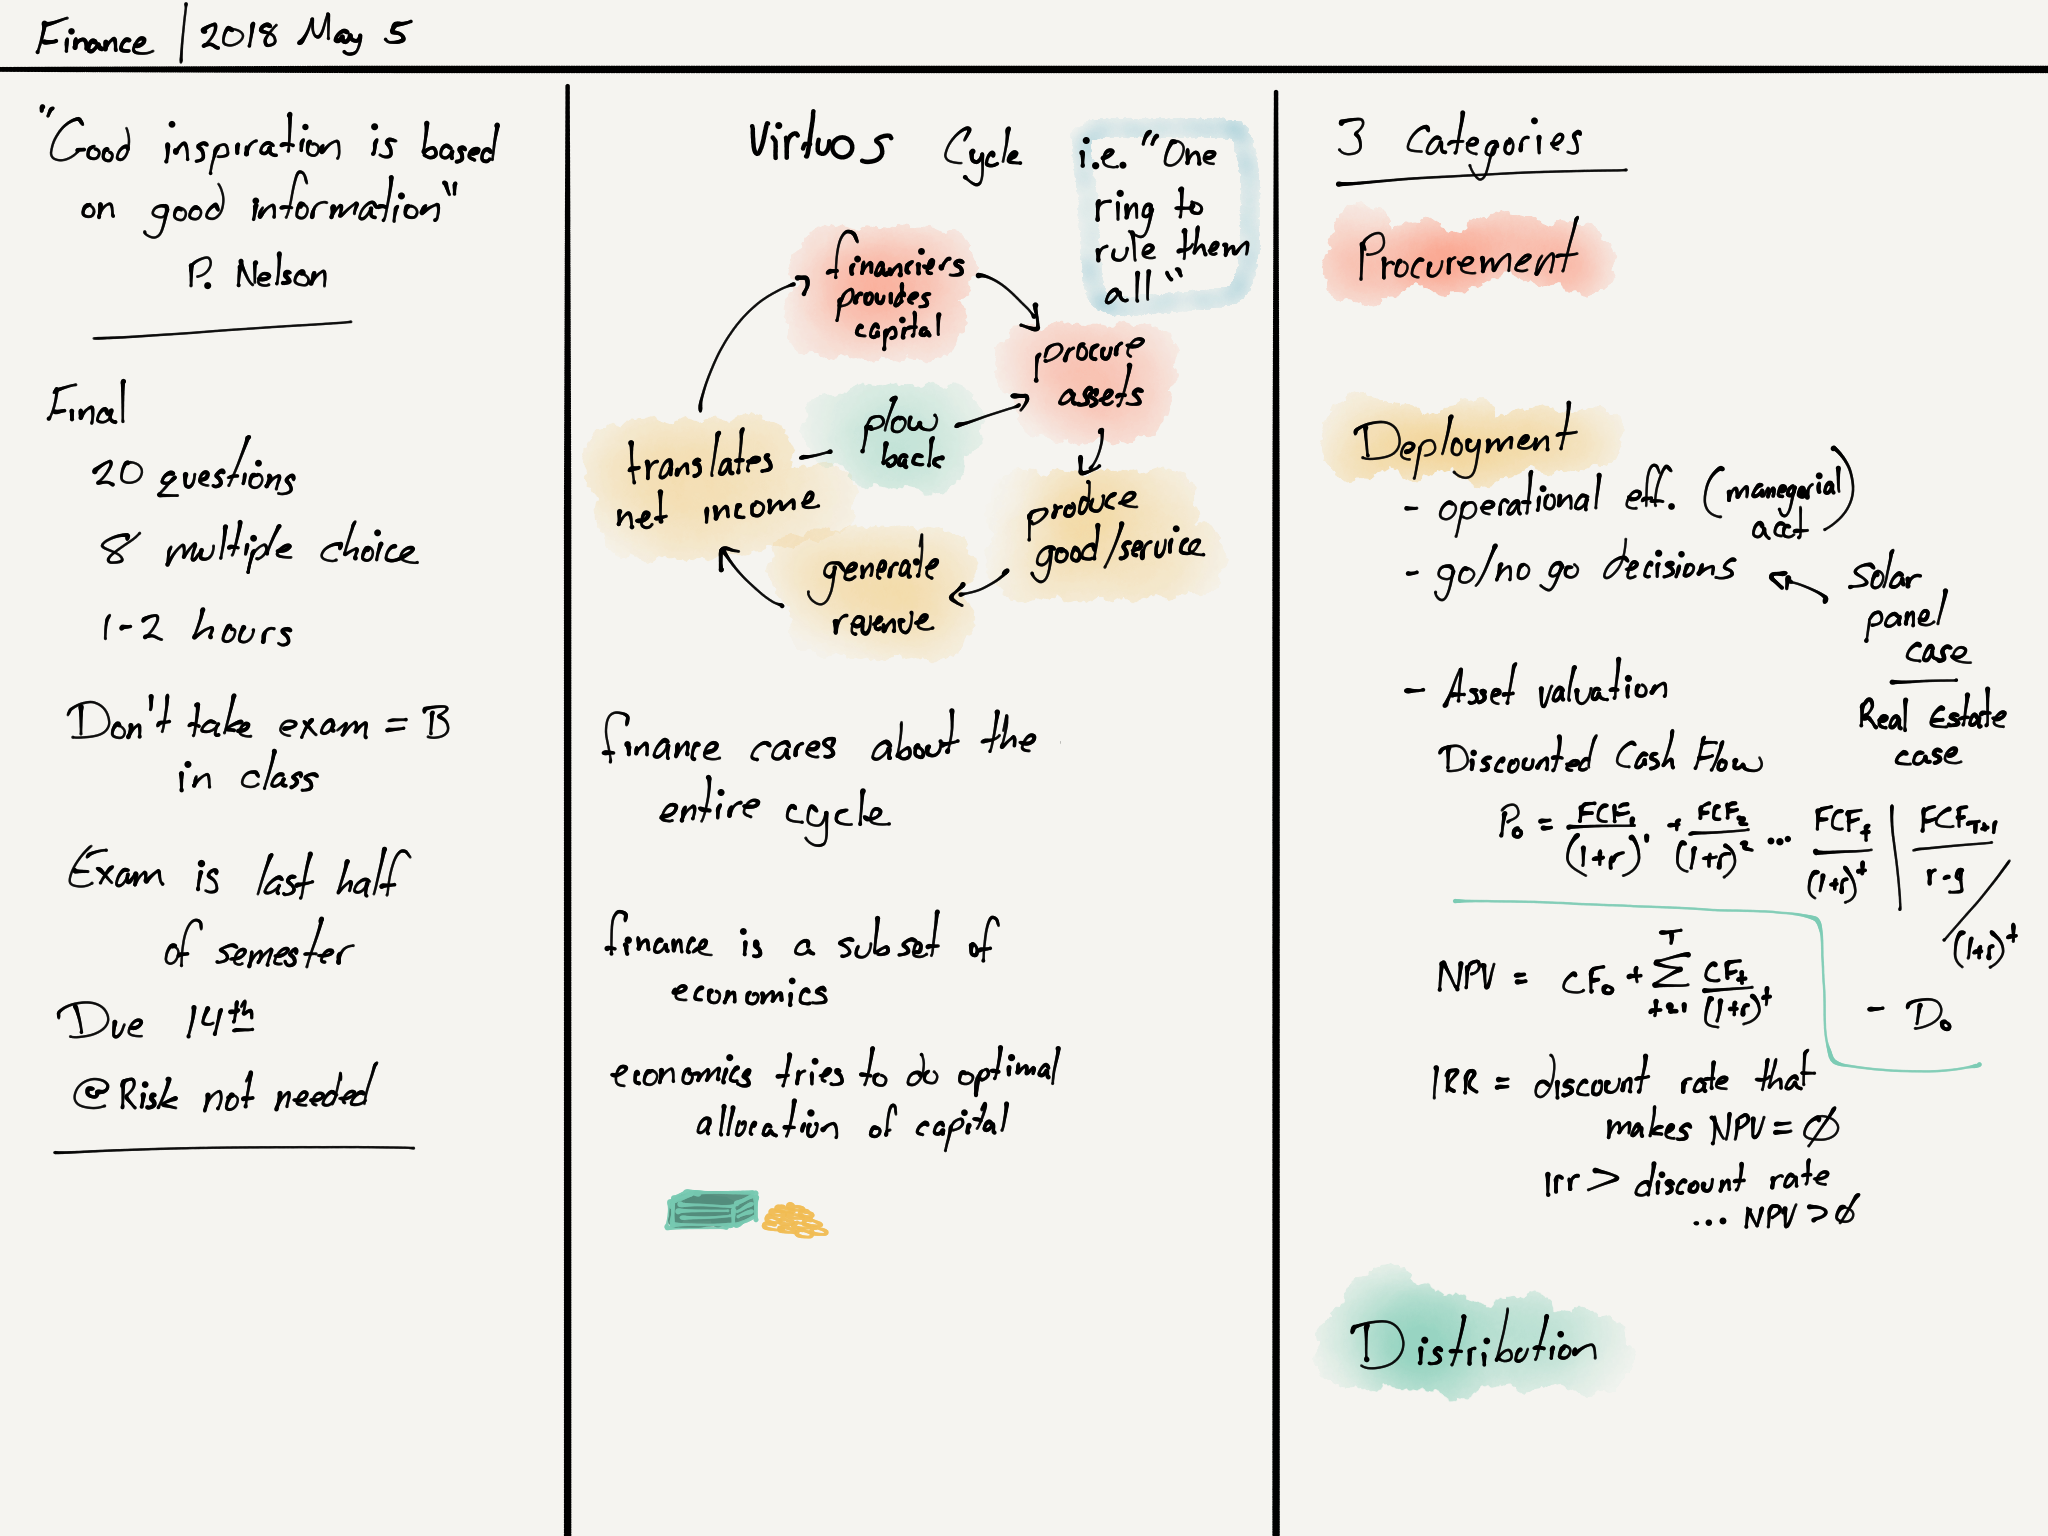 Finance | 2018 May 5
"Good inspiration is based
on good information"
P. Nelson
Final
20 questions
8 multiple choice
1-2 hours
Don't take exam = B
in class
Exam is last half
of semester
Due 14th
@Risk not needed
Virtuos Cycle
i.e. "One
ring to
rule them
all"
financiers
provides
capital
procure
assets
plow
back
translates
net income
produce
good/service
generate
revenue
finance cares about the
entire cycle
finance is a subset of
economics
economics tries to do optimal
allocation of capital
3 Categories
Procurement
Deployment
- operational eff. (manegerial
acct)
- go/no go decisions
Solar
panel
case
Real Estate
case
- Asset valuation
Discounted Cash Flow
P₀ = FCF₁/(1+r)¹ + FCF₂/(1+r)² ... FCFt/(1+r)^t | FCF_T+1/r-g / (1+r)^t
- D₀
NPV = CF₀ + Σ T t=1 CFt/(1+r)^t
IRR = discount rate that
makes NPV = Ø
Irr > discount rate
... NPV > Ø
Distribution